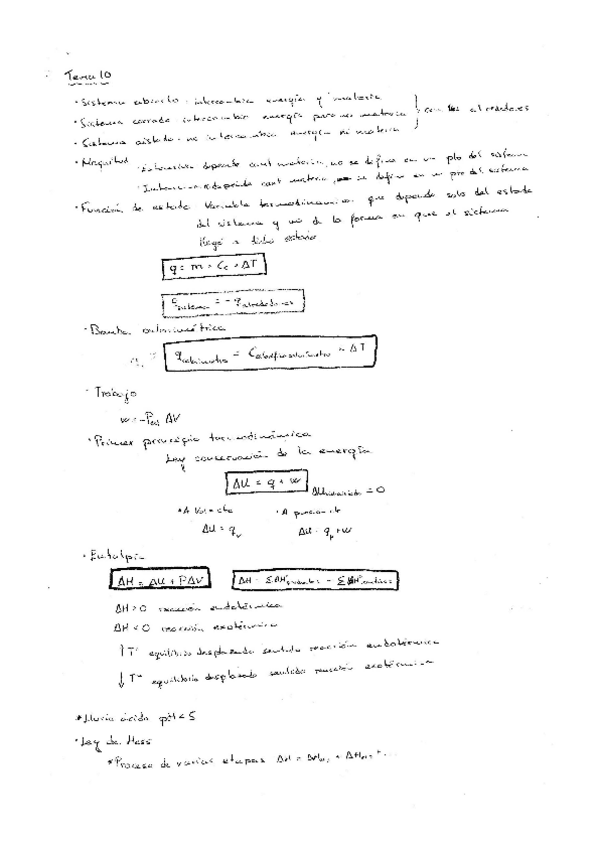 Tema 10
· Sistema abierto: intercambia energía y materia
· Sistema cerrado intercambia energía pero no materia } con los alrededores
· Sistema aislado: no intercambia energía ni materia
· Magnitud
· Extensiva: depende cant materia, no se define en un pto del sistema
· Intensiva: no depende cant materia, se define en un pto del sistema
· Función de estado Variable termodinámica que depende solo del estado
del sistema y no de la forma en que el sistema
llegó a dicho estado
q = m · Ce · ΔT
qsistema = - qalrededores
· Bomba calorimétrica
qcalorímetro = Ccalorímetro · ΔT
· Trabajo
w = -Pext ΔV
· Primer principio termodinámica
Ley conservación de la energía
ΔU = q + w
= 0
· A Vol = cte
· A presión cte
ΔU = qv
ΔU = qp + w
· Entalpía
ΔH = ΔU + PΔV
ΔH > 0 reacción endotérmica
ΔH < 0 reacción exotérmica
↑ Tª equilibrio desplazado sentido reacción endotérmica
↓ Tª equilibrio desplazado sentido reacción exotérmica
* Lluvia ácida pH < 5
· Ley de Hess
* Proceso de varias etapas ΔH =